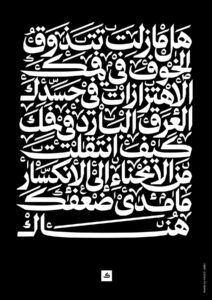 هل مازلت تتذوق
الخوف في فمك
الاهتزازات في جسدك
العرق البارد في
كيف انتقلت
من الانحناء إلى الانكسار
ما مدى ضعفك
هناك